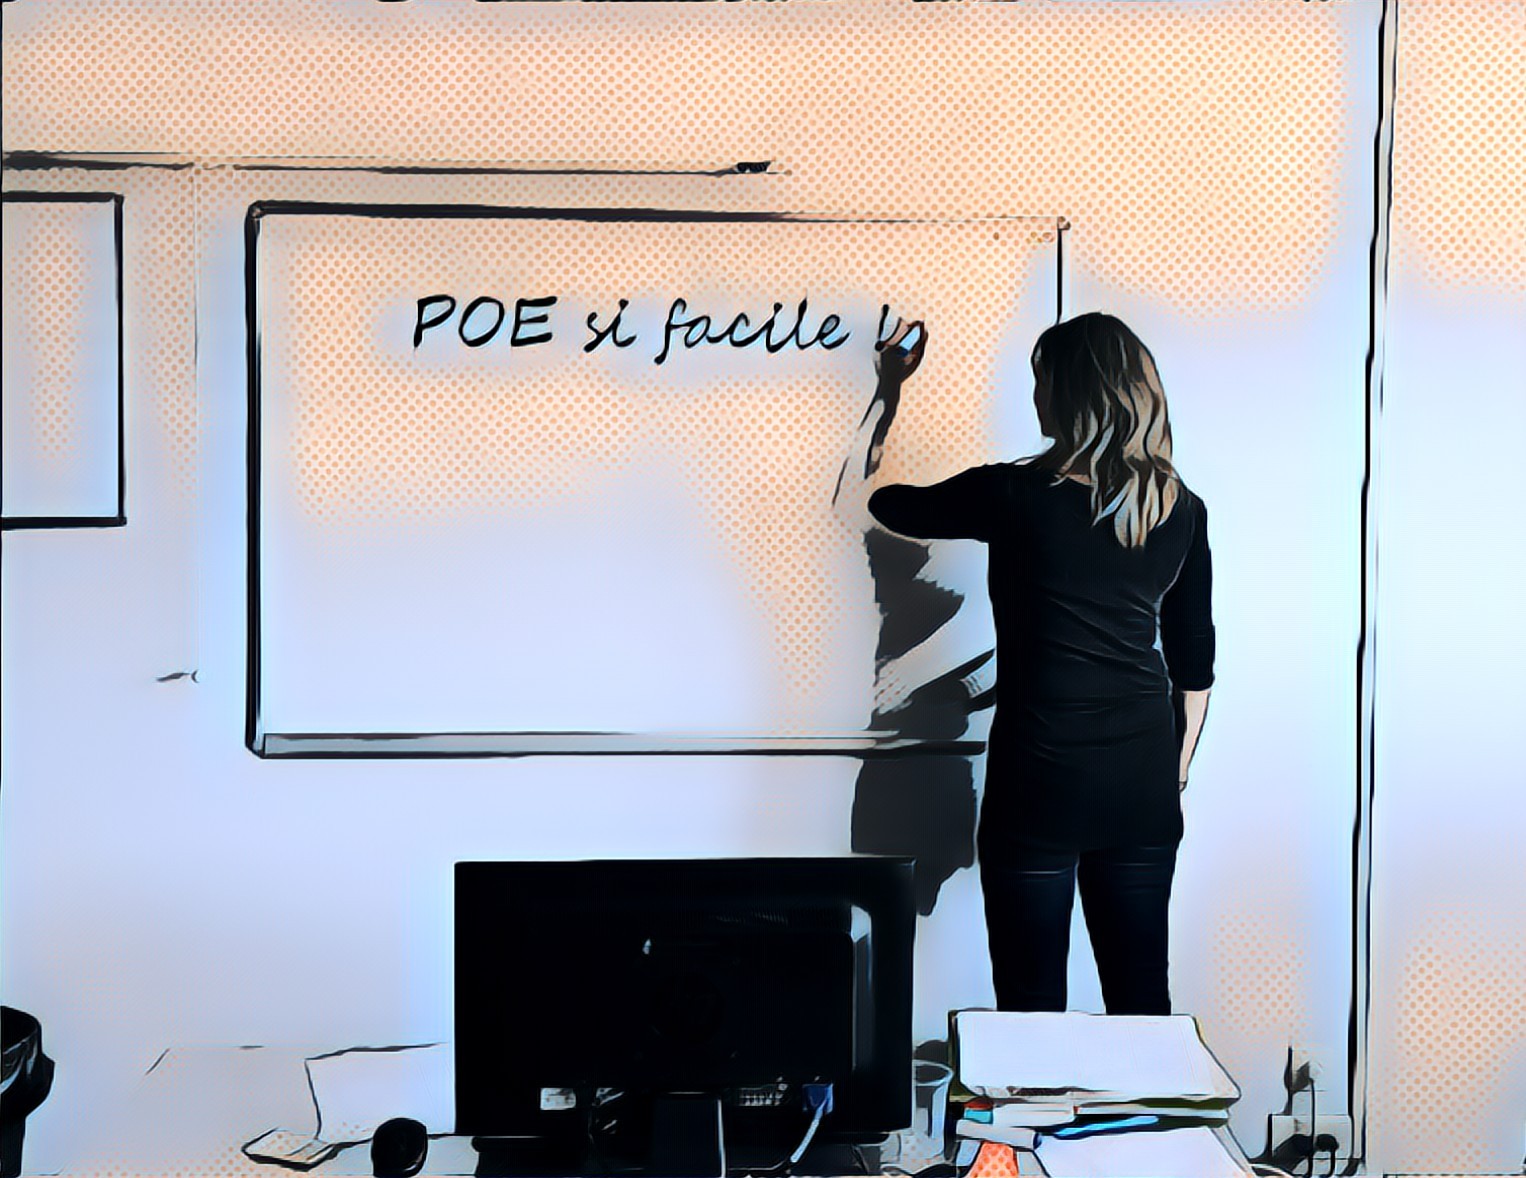 POE si facile !